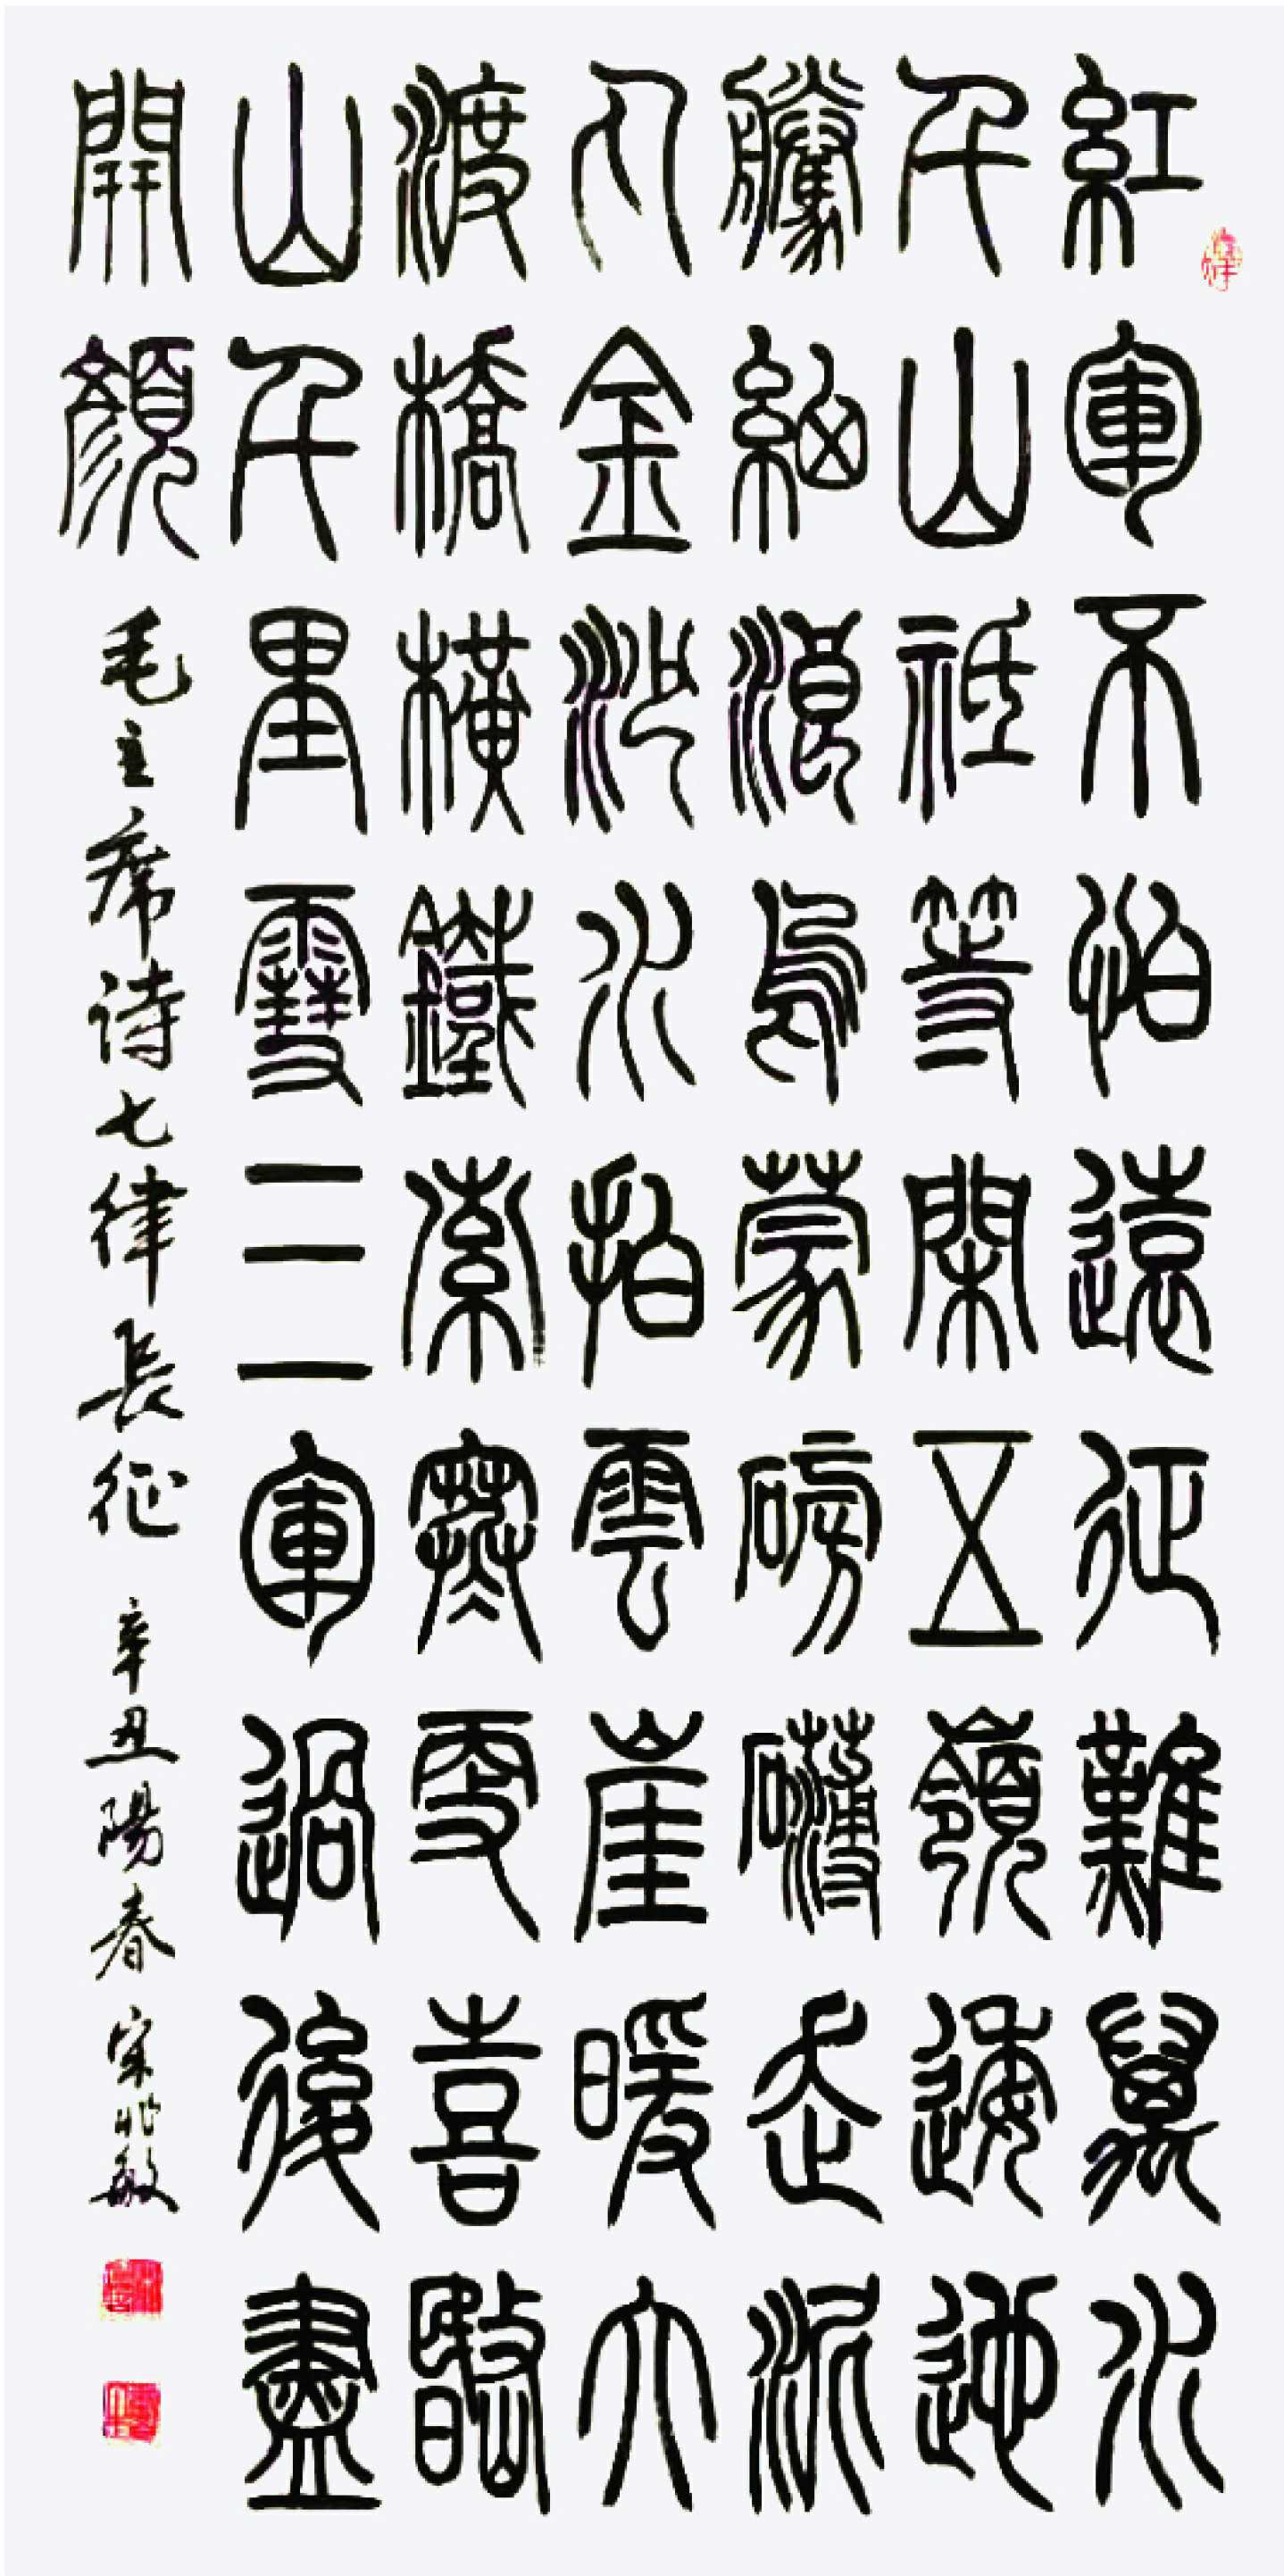 紅軍不怕遠征難萬水
千山祗等閑五嶺逶迤
騰細浪烏蒙磅礴走泥
丸金沙水拍雲崖暖大
渡橋橫鐵索寒更喜岷
山千里雪三軍過後盡
開顏 毛主席诗七律長征 辛丑陽春 宋兆敏